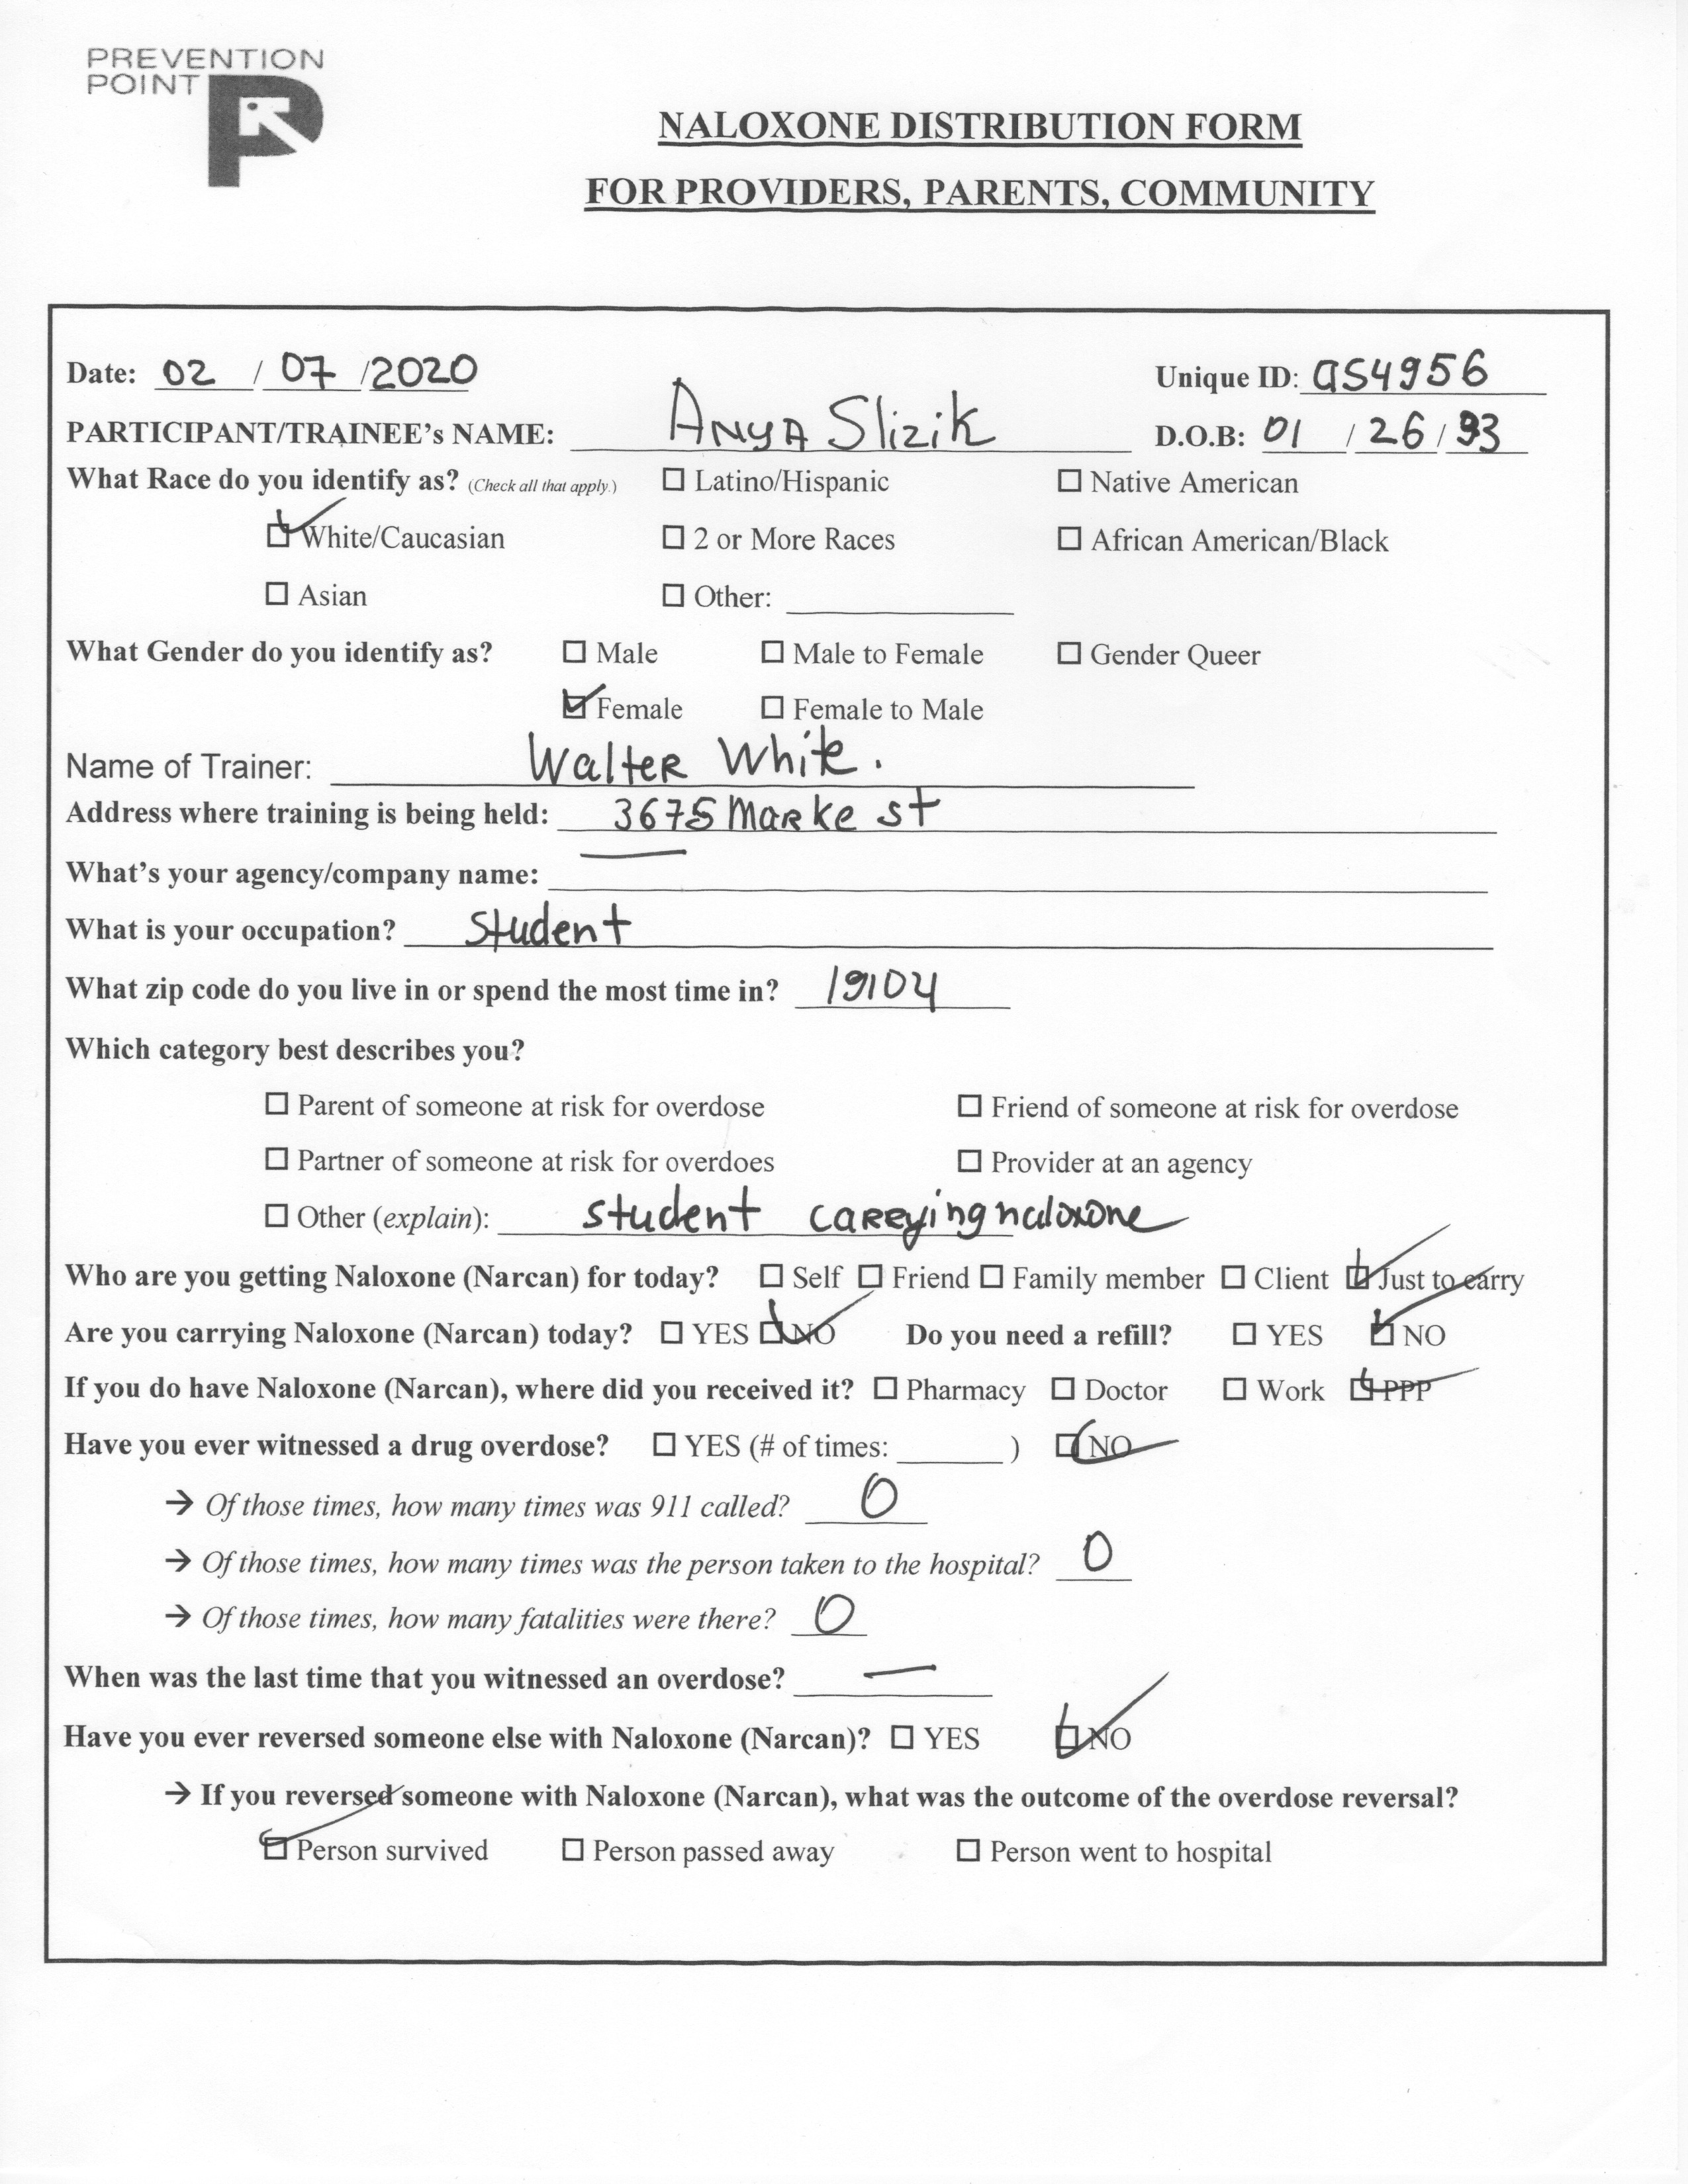 PREVENTION
POINT
NALOXONE DISTRIBUTION FORM
FOR PROVIDERS, PARENTS, COMMUNITY
Date: 02 / 07 / 2020 Unique ID: as4956
PARTICIPANT/TRAINEE's NAME: Anya Slizik D.O.B: 01 / 26 / 93
What Race do you identify as? (Check all that apply.) ☐ Latino/Hispanic ☐ Native American
☑ White/Caucasian ☐ 2 or More Races ☐ African American/Black
☐ Asian ☐ Other:
What Gender do you identify as? ☐ Male ☐ Male to Female ☐ Gender Queer
☑ Female ☐ Female to Male
Name of Trainer: Walter White.
Address where training is being held: 3675 Marke st
What's your agency/company name: —
What is your occupation? Student
What zip code do you live in or spend the most time in? 19104
Which category best describes you?
☐ Parent of someone at risk for overdose ☐ Friend of someone at risk for overdose
☐ Partner of someone at risk for overdoes ☐ Provider at an agency
☐ Other (explain): student carrying naloxone
Who are you getting Naloxone (Narcan) for today? ☐ Self ☐ Friend ☐ Family member ☐ Client ☑ Just to carry
Are you carrying Naloxone (Narcan) today? ☐ YES ☑ NO Do you need a refill? ☐ YES ☑ NO
If you do have Naloxone (Narcan), where did you received it? ☐ Pharmacy ☐ Doctor ☐ Work ☑ PPP
Have you ever witnessed a drug overdose? ☐ YES (# of times: ) ☑ NO
→ Of those times, how many times was 911 called? 0
→ Of those times, how many times was the person taken to the hospital? 0
→ Of those times, how many fatalities were there? 0
When was the last time that you witnessed an overdose? —
Have you ever reversed someone else with Naloxone (Narcan)? ☐ YES ☑ NO
→ If you reversed someone with Naloxone (Narcan), what was the outcome of the overdose reversal?
☑ Person survived ☐ Person passed away ☐ Person went to hospital